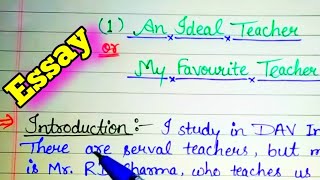 Essay
(1) An Ideal Teacher
or
My Favourite Teacher
⇒ Introduction:- I study in DAV In
There are serval teachers, but m
is Mr. R. Sharma, who teaches us